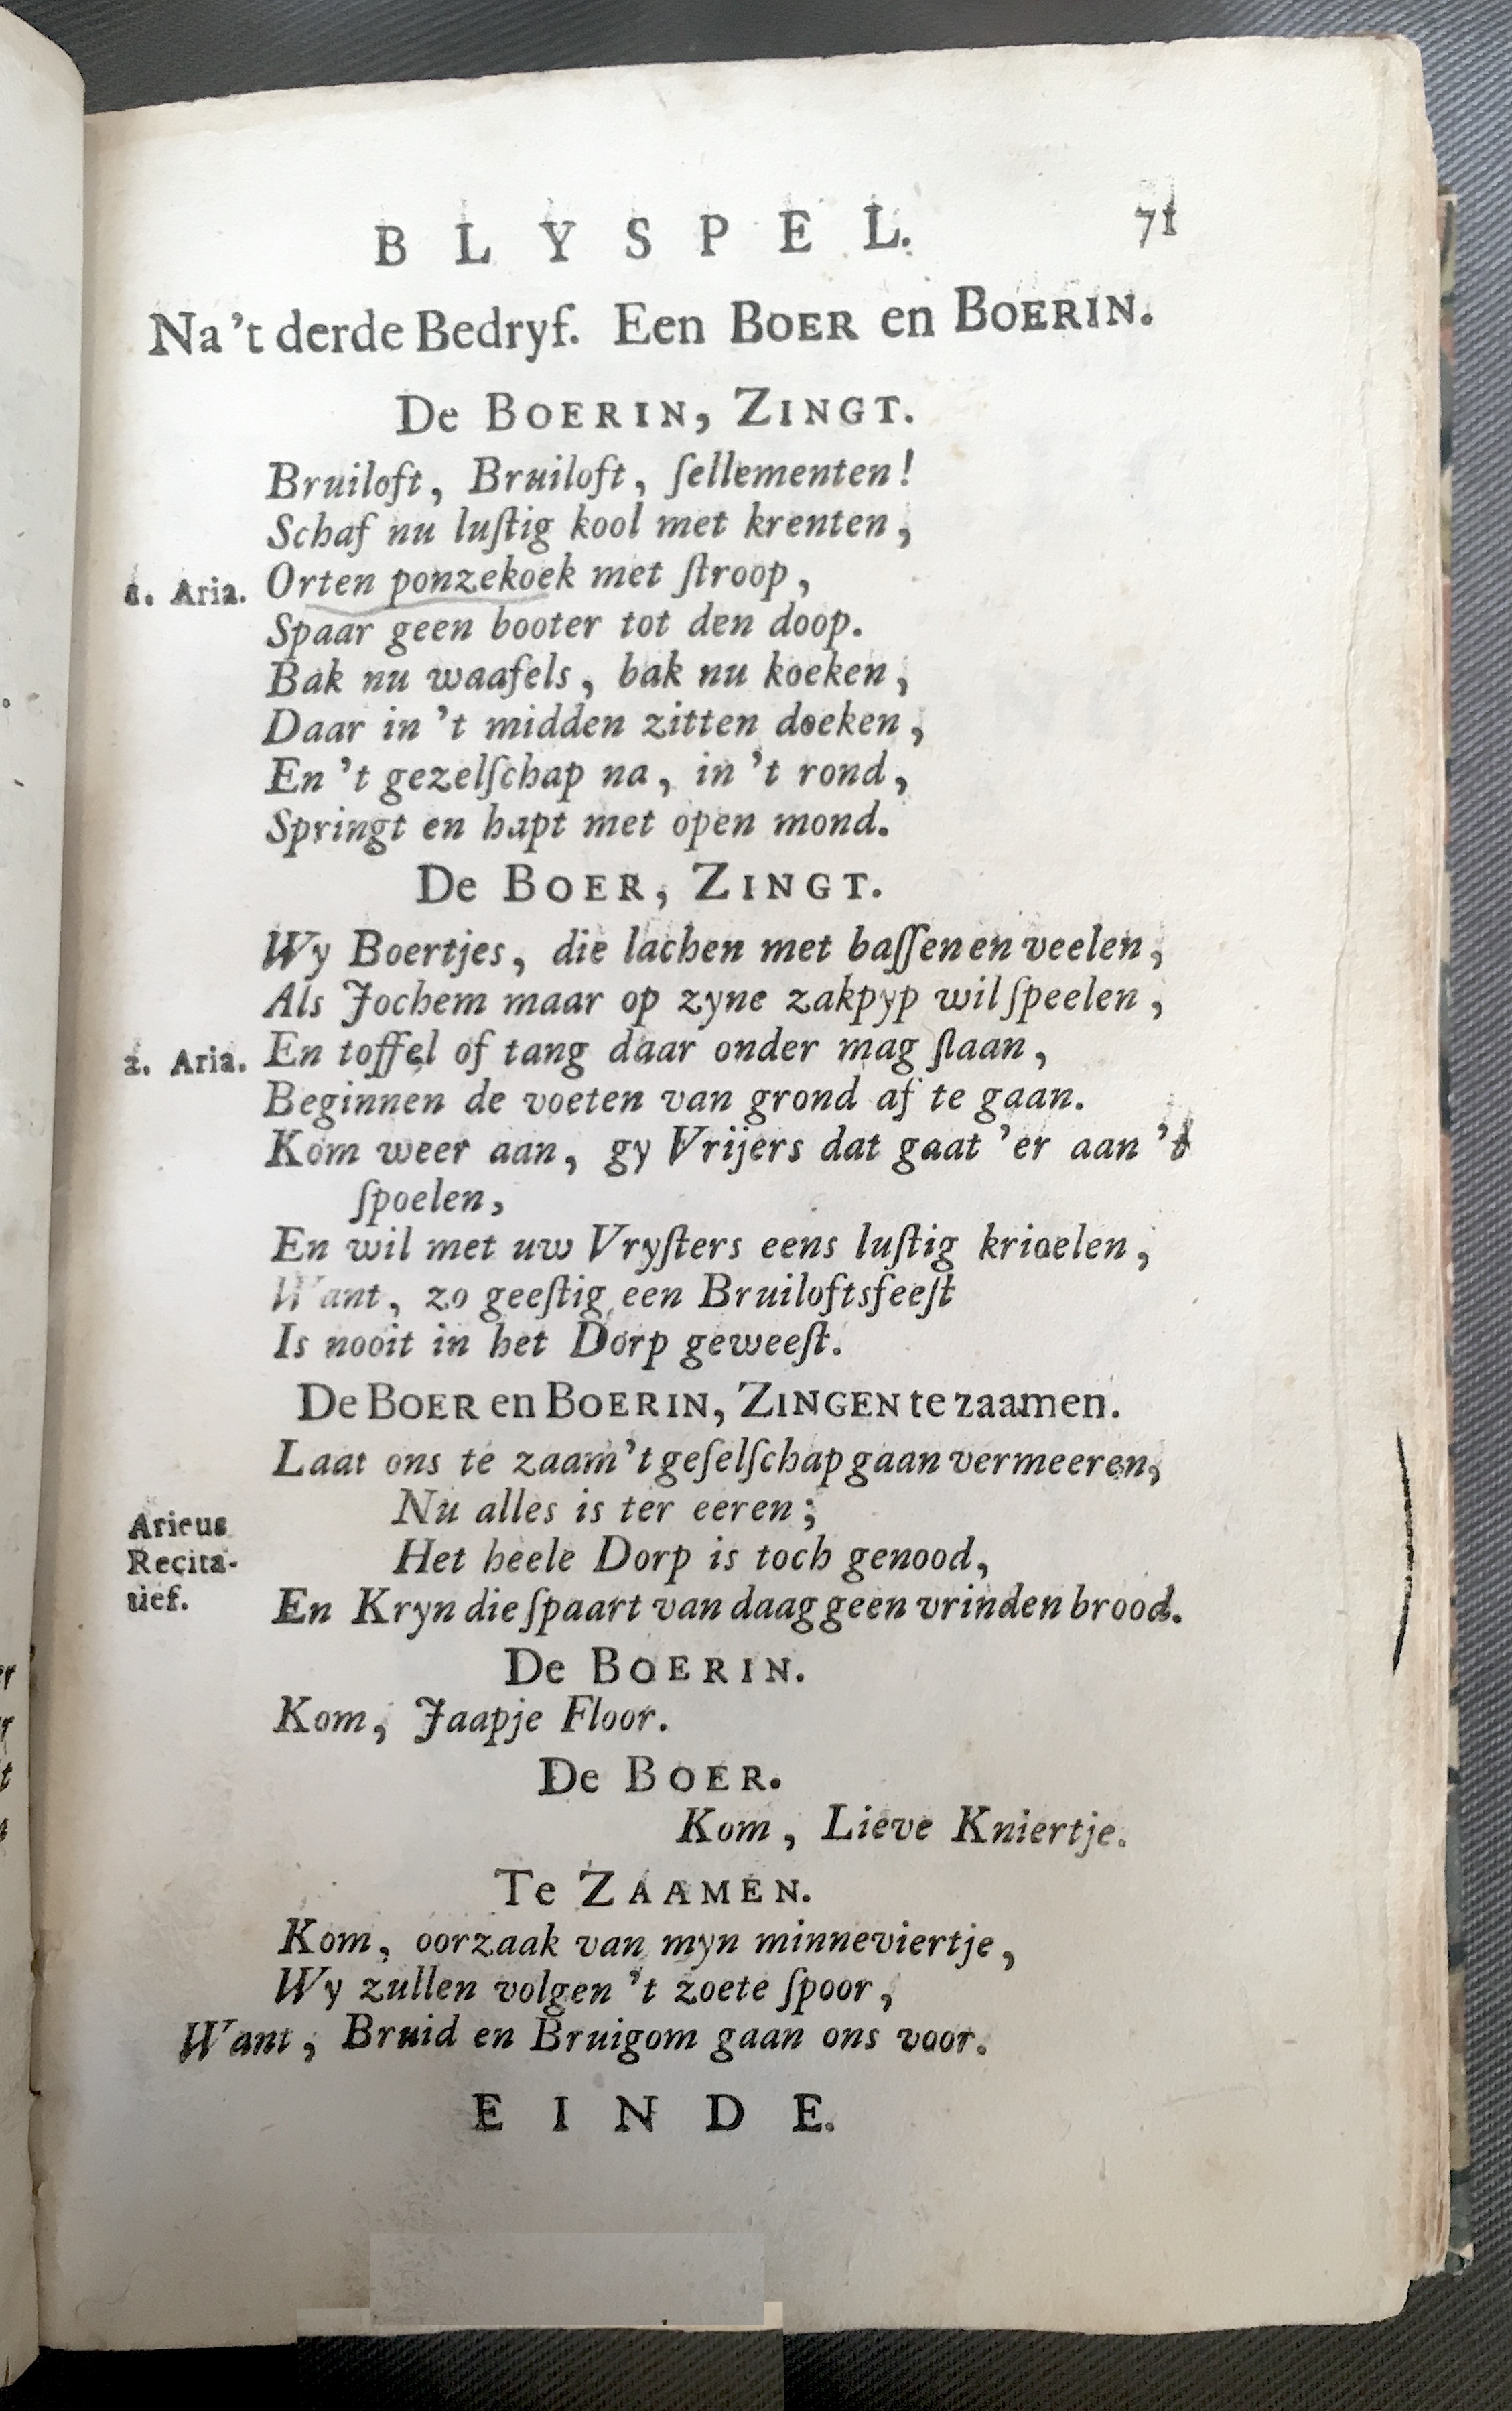 BLYSPEL. 71
Na 't derde Bedryf. Een BOER en BOERIN.
De BOERIN, ZINGT.
Bruiloft, Bruiloft, ſellementen!
Schaf nu luſtig kool met krenten,
1. Aria. Orten ponzekoek met ſtroop,
Spaar geen booter tot den doop.
Bak nu waafels, bak nu koeken,
Daar in 't midden zitten doeken,
En 't gezelſchap na, in 't rond,
Springt en hapt met open mond.
De BOER, ZINGT.
Wy Boertjes, die lachen met baſſen en veelen,
Als Jochem maar op zyne zakpyp wil ſpeelen,
2. Aria. En toffel of tang daar onder mag ſlaan,
Beginnen de voeten van grond af te gaan.
Kom weer aan, gy Vrijers dat gaat 'er aan 't
ſpoelen,
En wil met uw Vryſters eens luſtig krioelen,
Want, zo geeſtig een Bruiloftsfeeſt
Is nooit in het Dorp geweeſt.
De BOER en BOERIN, ZINGEN te zaamen.
Laat ons te zaam 't geſelſchap gaan vermeeren,
Nu alles is ter eeren;
Arieus
Recita-
tief.
Het heele Dorp is toch genood,
En Kryn die ſpaart van daag geen vrinden brood.
De BOERIN.
Kom, Jaapje Floor.
De BOER.
Kom, Lieve Kniertje.
Te ZAAMEN.
Kom, oorzaak van myn minneviertje,
Wy zullen volgen 't zoete ſpoor,
Want, Bruid en Bruigom gaan ons voor.
EINDE.